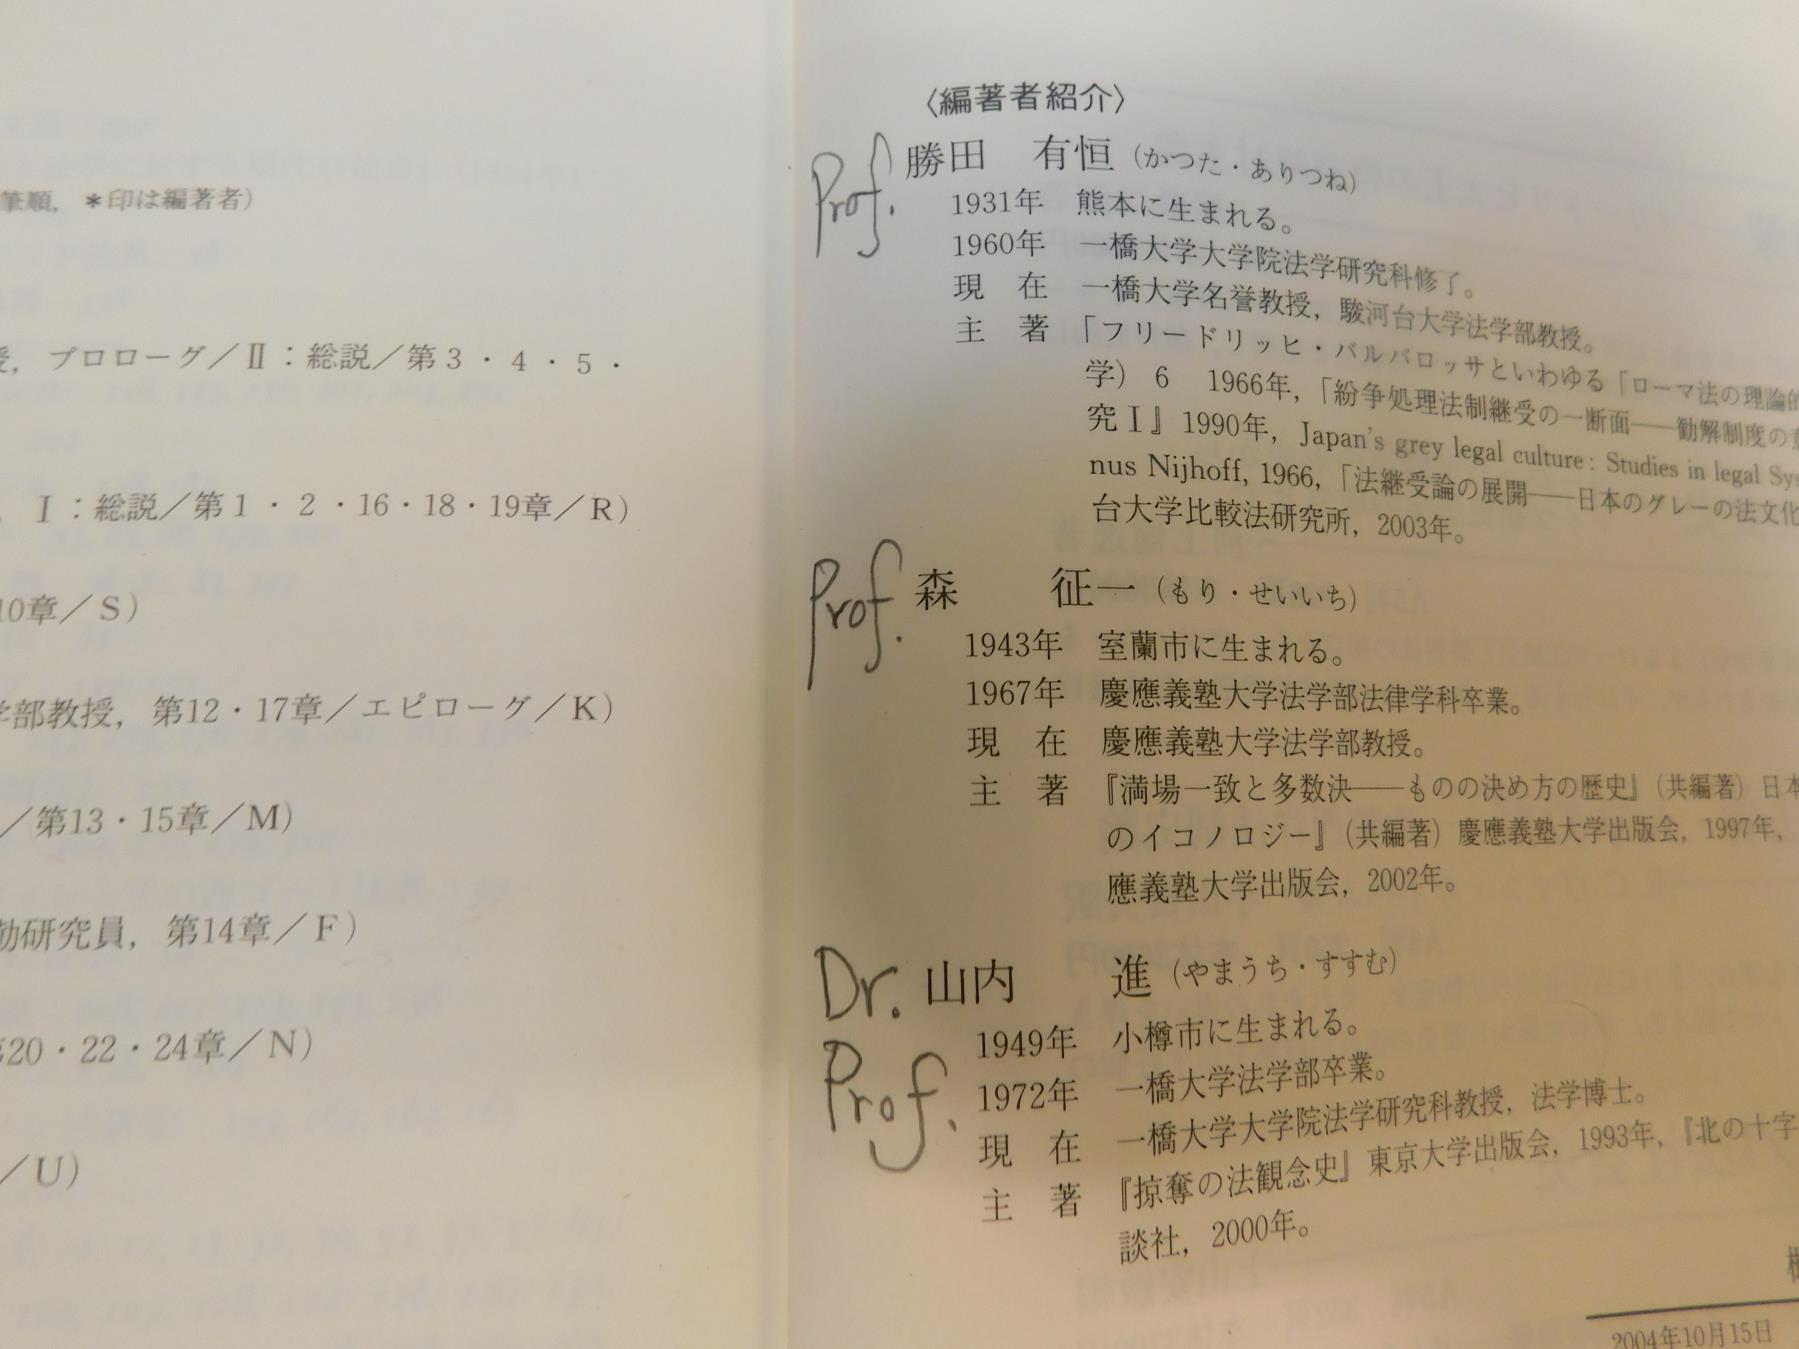 筆順，＊印は編著者）
，プロローグ／Ⅱ：総説／第3・4・5・
，Ⅰ：総説／第1・2・16・18・19章／R）
10章／S）
学部教授，第12・17章／エピローグ／K）
／第13・15章／M）
勤研究員，第14章／F）
20・22・24章／N）
／U）
〈編著者紹介〉
Prof. 勝田　有恒（かつた・ありつね）
1931年　熊本に生まれる。
1960年　一橋大学大学院法学研究科修了。
現　在　一橋大学名誉教授，駿河台大学法学部教授。
主　著　「フリードリッヒ・バルバロッサといわゆる「ローマ法の理論的
学）6　1966年，「紛争処理法制継受の一断面――勧解制度の
究Ⅰ』1990年，Japan's grey legal culture: Studies in legal Sys
nus Nijhoff, 1966,「法継受論の展開――日本のグレーの法文化
台大学比較法研究所，2003年。
Prof. 森　　征一（もり・せいいち）
1943年　室蘭市に生まれる。
1967年　慶應義塾大学法学部法律学科卒業。
現　在　慶應義塾大学法学部教授。
主　著　『満場一致と多数決――ものの決め方の歴史』（共編著）日本
のイコノロジー』（共編著）慶應義塾大学出版会，1997年，
應義塾大学出版会，2002年。
Dr. 山内　　進（やまうち・すすむ）
Prof.
1949年　小樽市に生まれる。
1972年　一橋大学法学部卒業。
現　在　一橋大学大学院法学研究科教授，法学博士。
主　著　『掠奪の法観念史』東京大学出版会，1993年，『北の十字
談社，2000年。
2004年10月15日